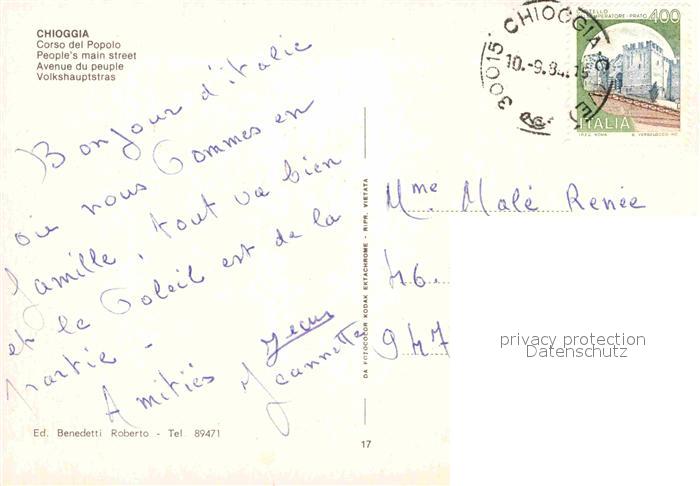 CHIOGGIA
Corso del Popolo
People's main street
Avenue du peuple
Volkshauptstras
Bonjour d'italie
où nous Sommes en
famille, tout va bien
et le Soleil est de la
partie -
Amitiés
Jeannette
DA FOTOCOLOR KODAK EKTACHROME - RIPR. VIETATA
Ed. Benedetti Roberto - Tel 89471
17
30015 CHIOGGIA
CASTELLO
IMPERATORE - PRATO 400
ITALIA
I.P.Z.S. ROMA
Mme Malé Renée
46.
947
privacy protection
Datenschutz